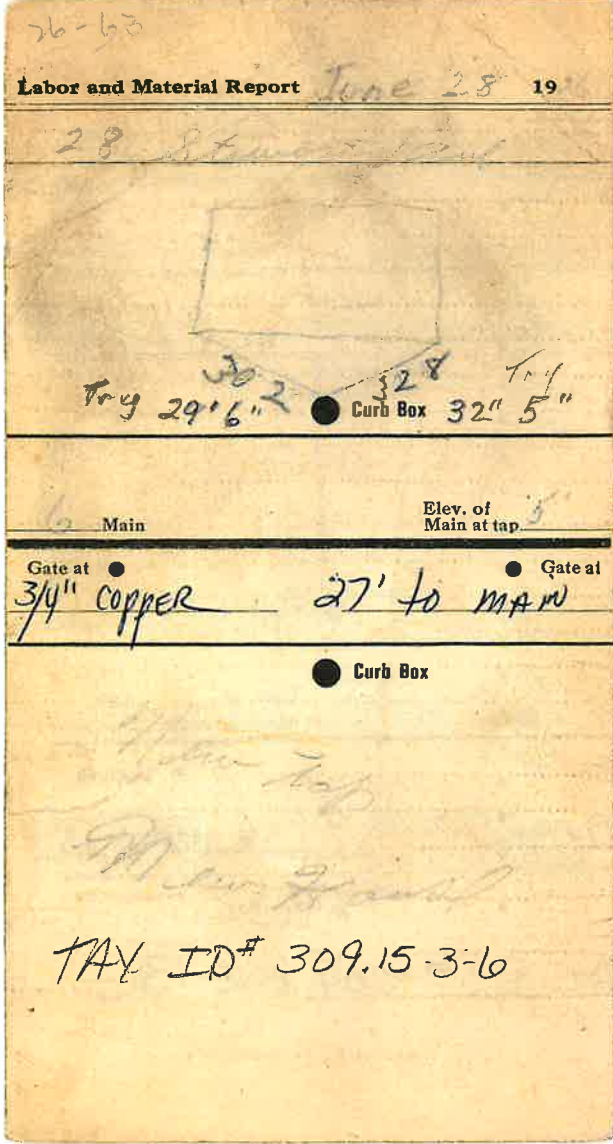 26-63
Labor and Material Report June 28 19
28
30 2 28
Try 29'6" Curb Box 32" 5" Try
6 Main
Elev. of
Main at tap 5
Gate at Gate at
3/4" COPPER 27' to MAIN
Curb Box
New Tap
New
TAY ID# 309.15-3-6